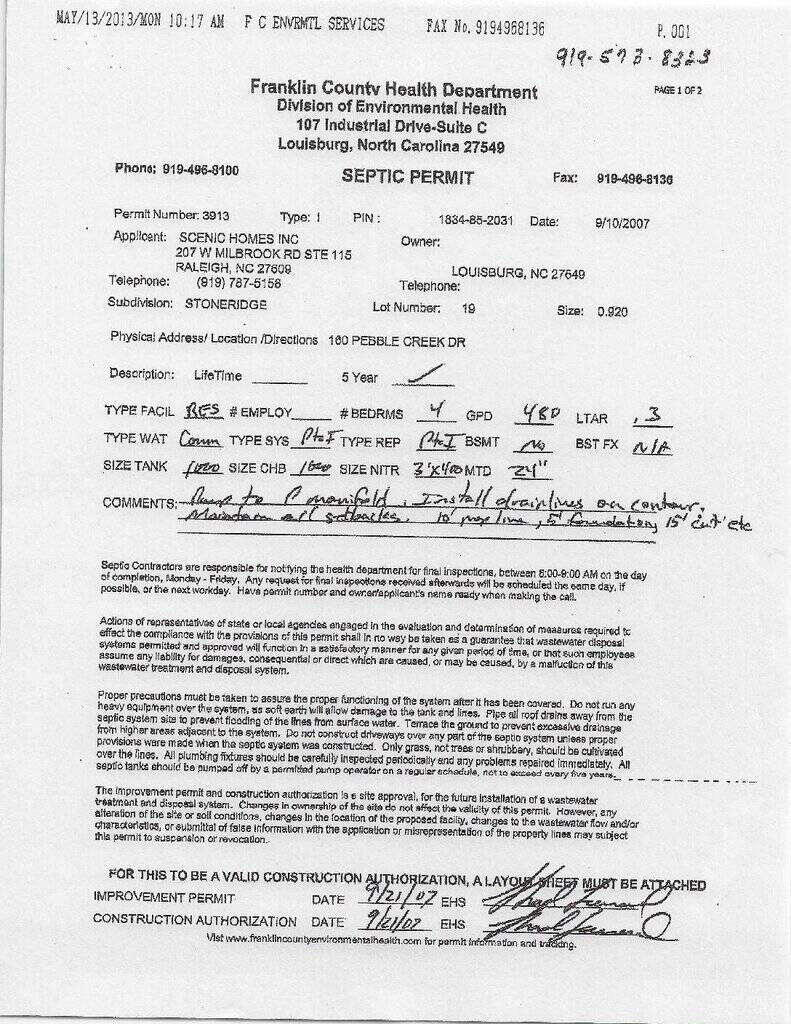 MAY/13/2013/MON 10:17 AM F C ENVRMTL SERVICES FAX No. 9194968136 P. 001
919-573-8323
Franklin County Health Department PAGE 1 OF 2
Division of Environmental Health
107 Industrial Drive-Suite C
Louisburg, North Carolina 27549
Phone: 919-496-8100 SEPTIC PERMIT Fax: 919-496-8136
Permit Number: 3913 Type: I PIN : 1834-85-2031 Date: 9/10/2007
Applicant: SCENIC HOMES INC Owner:
207 W MILBROOK RD STE 115
RALEIGH, NC 27609 LOUISBURG, NC 27549
Telephone: (919) 787-5156 Telephone:
Subdivision: STONERIDGE Lot Number: 19 Size: 0.920
Physical Address/ Location /Directions 160 PEBBLE CREEK DR
Description: LifeTime 5 Year ✓
TYPE FACIL RES # EMPLOY # BEDRMS 4 GPD 480 LTAR .3
TYPE WAT Comm TYPE SYS PtoI TYPE REP PtoI BSMT No BST FX N/A
SIZE TANK 1000 SIZE CHB 1000 SIZE NITR 3'X400 MTD 24"
COMMENTS: Pump to P manifold. Install drainlines on contour.
Maintain all setbacks. 10' prop line, 5' foundation, 15' cut etc
Septic Contractors are responsible for notifying the health department for final inspections, between 8:00-9:00 AM on the day
of completion, Monday - Friday. Any request for final inspections received afterwards will be scheduled the same day, if
possible, or the next workday. Have permit number and owner/applicant's name ready when making the call.
Actions of representatives of state or local agencies engaged in the evaluation and determination of measures required to
effect the compliance with the provisions of this permit shall in no way be taken as a guarantee that wastewater disposal
systems permitted and approved will function in a satisfactory manner for any given period of time, or that such employees
assume any liability for damages, consequential or direct which are caused, or may be caused, by a malfuction of this
wastewater treatment and disposal system.
Proper precautions must be taken to assure the proper functioning of the system after it has been covered. Do not run any
heavy equipment over the system, as soft earth will allow damage to the tank and lines. Pipe all roof drains away from the
septic system site to prevent flooding of the lines from surface water. Terrace the ground to prevent excessive drainage
from higher areas adjacent to the system. Do not construct driveways over any part of the septic system unless proper
provisions were made when the septic system was constructed. Only grass, not trees or shrubbery, should be cultivated
over the lines. All plumbing fixtures should be carefully inspected periodically and any problems repaired immediately. All
septic tanks should be pumped off by a permitted pump operator on a regular schedule, not to exceed every five years.
The improvement permit and construction authorization is a site approval, for the future installation of a wastewater
treatment and disposal system. Changes in ownership of the site do not affect the validity of this permit. However, any
alteration of the site or soil conditions, changes in the location of the proposed facility, changes to the wastewater flow and/or
characteristics, or submittal of false information with the application or misrepresentation of the property lines may subject
this permit to suspension or revocation.
FOR THIS TO BE A VALID CONSTRUCTION AUTHORIZATION, A LAYOUT SHEET MUST BE ATTACHED
IMPROVEMENT PERMIT DATE 9/21/07 EHS
CONSTRUCTION AUTHORIZATION DATE 9/21/07 EHS
Visit www.franklincountyenvironmentalhealth.com for permit information and tracking.